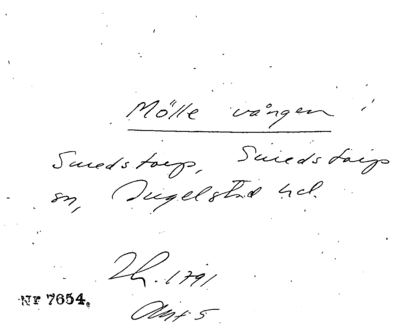 Mölle vången
Smedstorp, Smedstorp
sn, Ingelstad hd.
Th. 1791
Akt 5
Nr 7654.